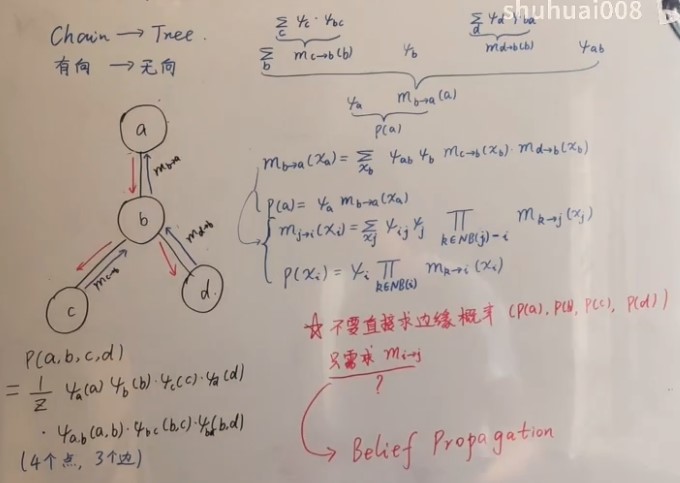 shuhuai008
Chain → Tree.
有向 → 无向
a
m_{b→a}
b
m_{c→b}
m_{d→b}
c
d
P(a,b,c,d)
= 1/Z ψ_a(a) ψ_b(b)·ψ_c(c)·ψ_d(d)
· ψ_{a,b}(a,b)·ψ_{bc}(b,c)·ψ_{bd}(b,d)
(4个点, 3个边)
∑_c ψ_c·ψ_{bc} ∑_d ψ_d
∑_b m_{c→b}(b) ψ_b m_{d→b}(b) ψ_{ab}
ψ_a m_{b→a}(a)
P(a)
m_{b→a}(x_a) = ∑_{x_b} ψ_{ab} ψ_b m_{c→b}(x_b)·m_{d→b}(x_b)
P(a) = ψ_a m_{b→a}(x_a)
m_{j→i}(x_i) = ∑_{x_j} ψ_{ij} ψ_j ∏_{k∈NB(j)-i} m_{k→j}(x_j)
P(x_i) = ψ_i ∏_{k∈NB(i)} m_{k→i}(x_i)
☆ 不要直接求边缘概率 (P(a), P(b), P(c), P(d))
只需求 m_{i→j}
?
→ Belief Propagation